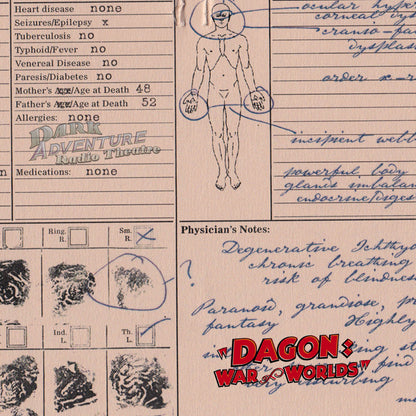 Heart disease none
Seizures/Epilepsy x
Tuberculosis no
Typhoid/Fever no
Venereal Disease no
Paresis/Diabetes no
Mother's Age at Death 48
Father's Age at Death 52
Allergies: none
DARK
ADVENTURE
Radio Theatre
Medications: none
ocular
corneal
dysplas
order x-r
incipient webb
powerful body
glands imbalan
endocrine/diges
Ring.
R.
Sm.
R.
X
Ind.
L.
Th.
L.
Physician's Notes:
Degenerative Ichthyo
chronic breathing
risk of blindnes
?
Paranoid, grandiose, p
fantasy Highly
"DAGON:
WAR of WORLDS"
find